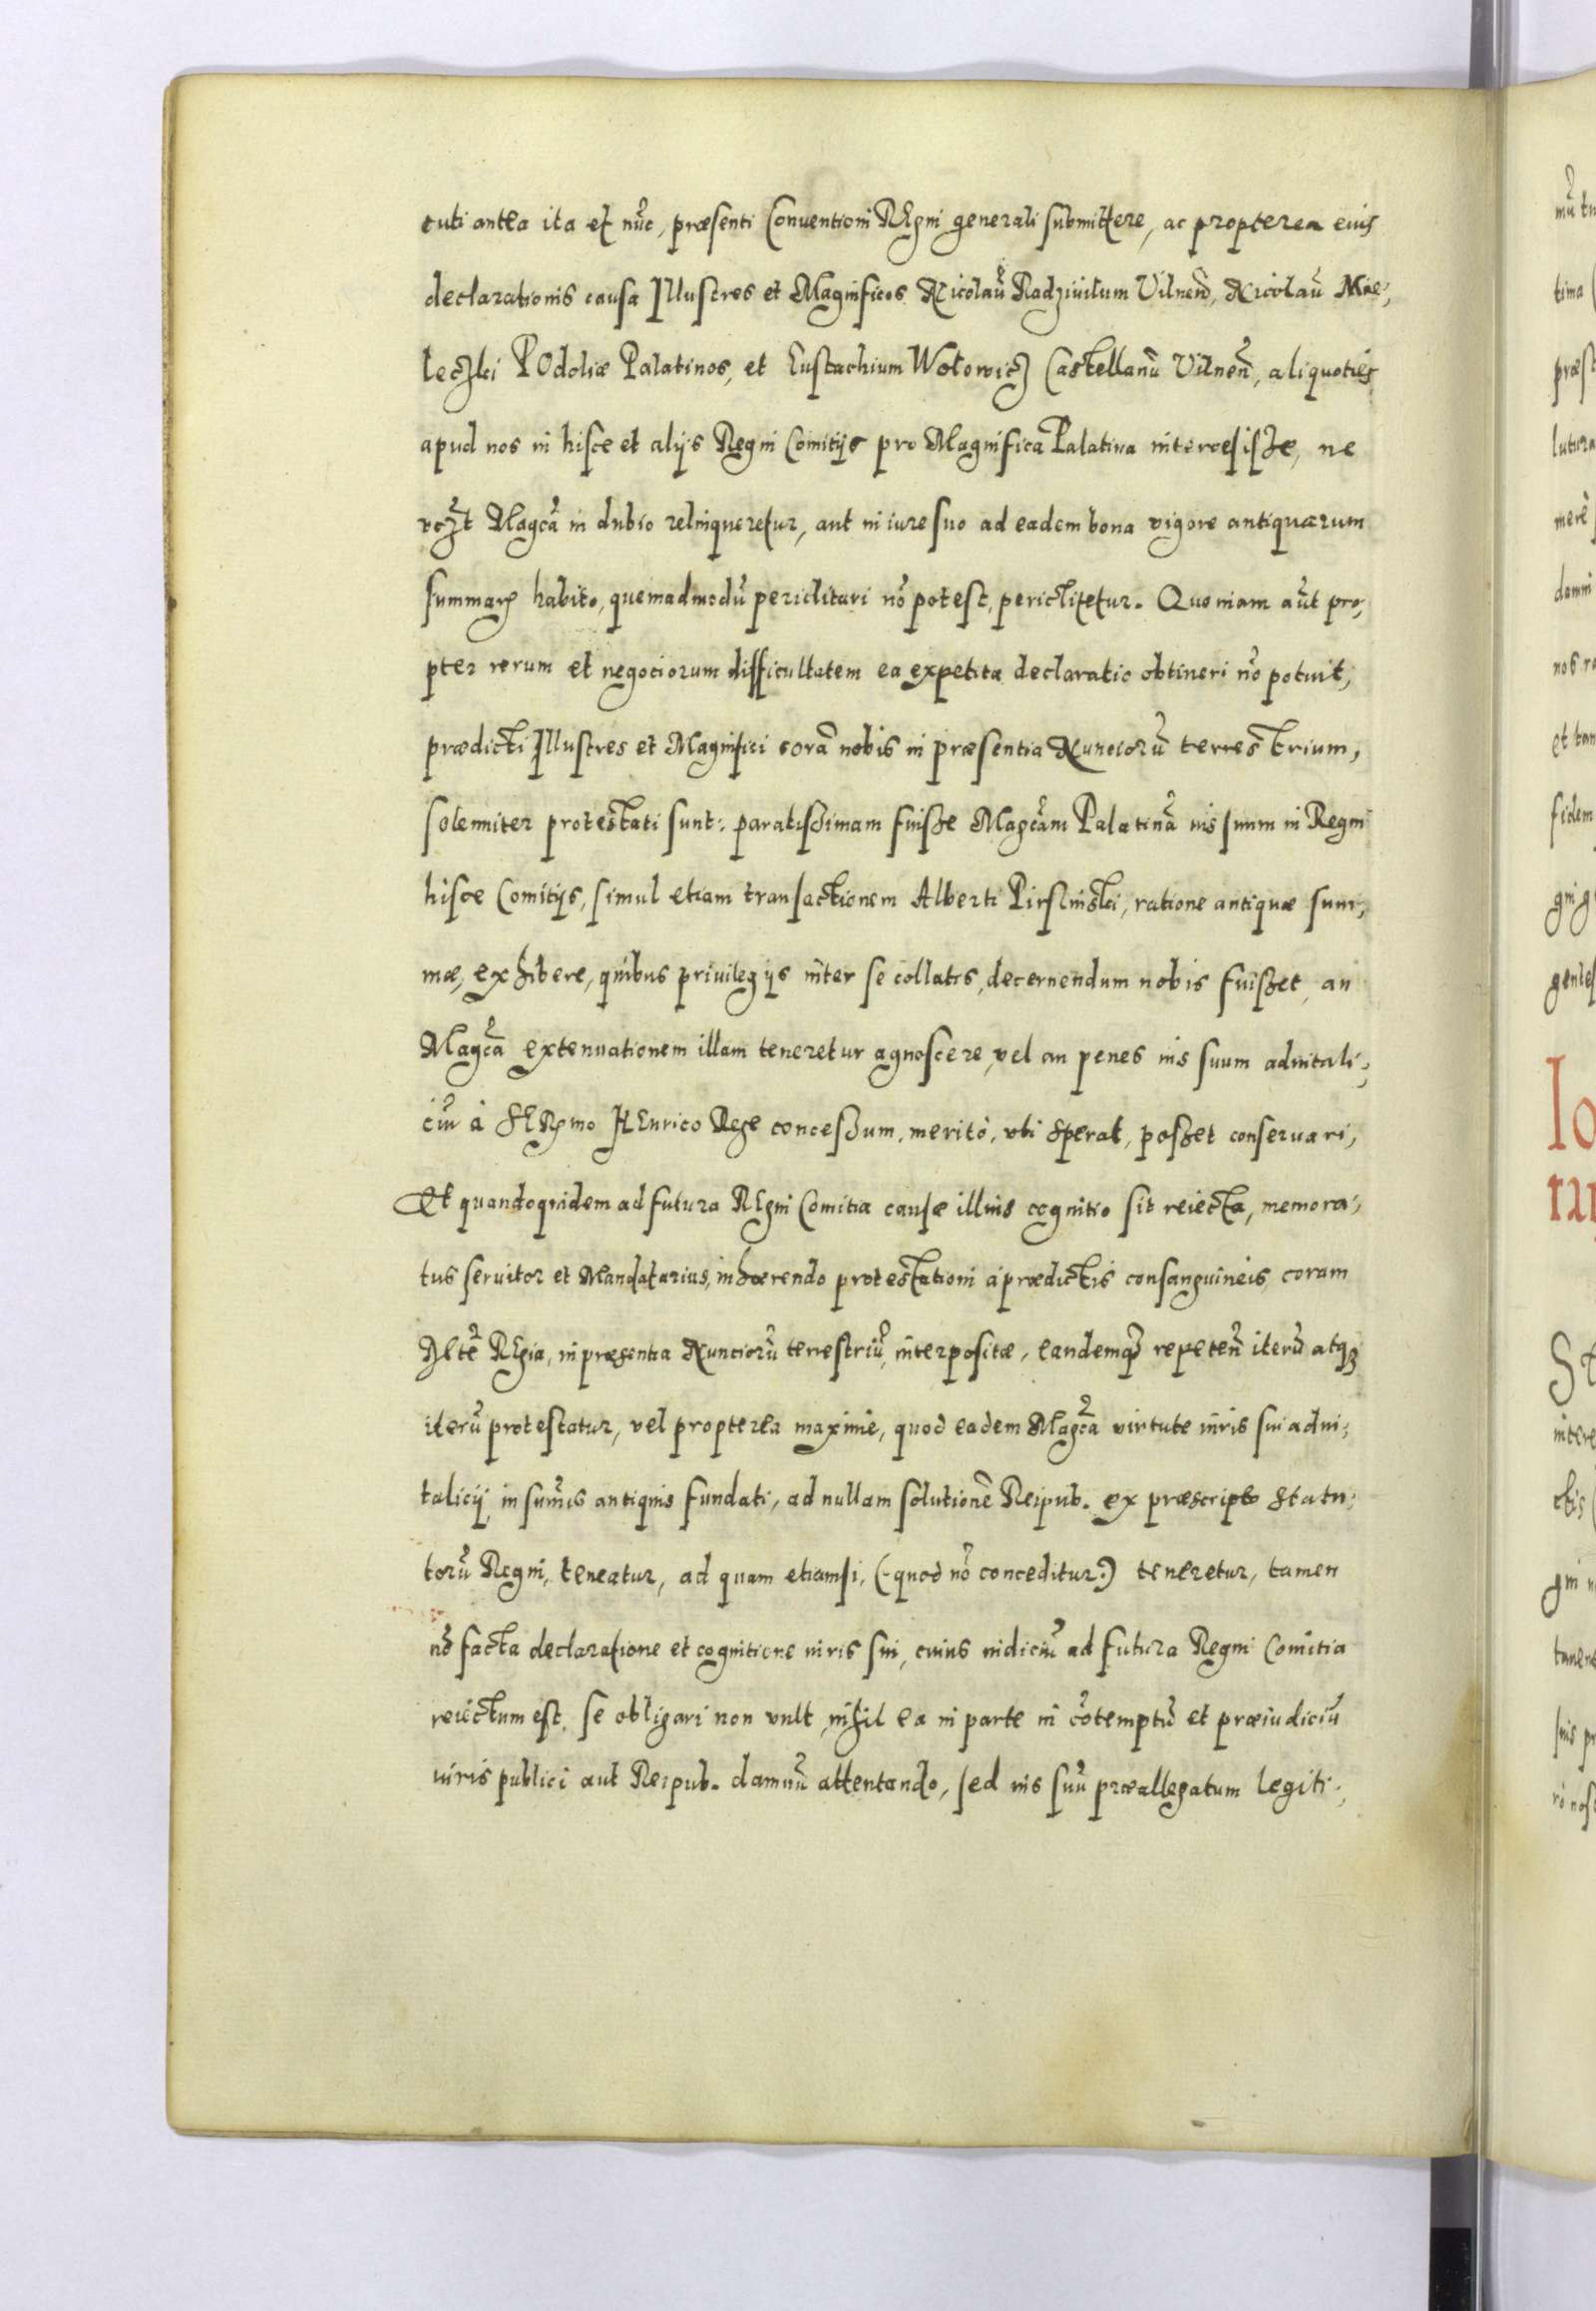 cuti antea ita et nũc, præsenti Conventioni REgni generali submittere, ac propterea eius
declarationis causa Illustres et Magnificos Nicolaũ Radziuilum Vilneñ, Nicolaũ Mie,
leczki POdoliæ Palatinos, et Eustachium Wołowicz Castellanũ Vilneñ, aliquoties
apud nos in hisce et alijs Regni Comitijs pro Magnifica Palatina intercesisse, ne
vczt Magcã in dubio relinqueretur, aut in iure suo ad eadem bona vigore antiquarum
summarꝝ habito, quemadmodũ periclitari nõ potest, periclitetur. Quoniam aũt pro,
pter rerum et negociorum difficultatem ea expetita declaratio obtineri nõ potuit,
prædicti Illustres et Magnifici corã nobis in præsentia Nunciorũ terrestrium,
solenniter protestati sunt: paratissimam fuisse Magcãm Palatinã ius suum in Regni
hisce Comitijs, simul etiam transactionem Alberti Pirsinski, ratione antiquæ sum,
mæ, exhibere, quibus priuilegijs inter se collatis, decernendum nobis fuisset, an
Magcã extenuationem illam teneretur agnoscere, vel an penes ius suum aduitali,
ciũ à SERꝝmo HEnrico Rege concessum, meritò, vti sperat, posset conseruari,
Et quandoquidem ad futura REgni Comitia causæ illius cognitio sit reiecta, memora,
tus seruitor et Mandatarius, inhærendo protestationi à prædictis consanguineis, coram
Mte REgia, in præsentia Nunciorũ terrestriũ, interpositæ, eandemqꝫ repeteñ iterũ atqꝫ
iterũ protestatur, vel propterea maximè, quod eadem Magcã virtute iuris sui adui,
talicij, in sum̃is antiquis fundati, ad nullam solutionẽ Reipub. ex præscripto statu,
torũ Regni, teneatur, ad quam etiamsi, (quod nõ conceditur:) teneretur, tamen
nõ facta declaratione et cognitione iuris sui, cuius iudiciũ ad futura Regni Comitia
reiectum est, se obligari non vult, nihil ea in parte in cõtemptũ et præiudiciũ
iuris publici aut Reipub. damnũ attentando, sed ius suũ præallegatum legiti,